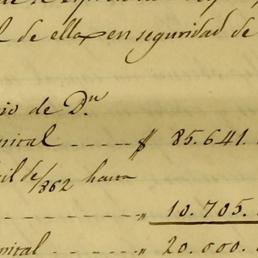 l de ella en seguridad de
io de Dn
pital - - - - $ 85.641.
il de 1862 hasta
- - - - - - " 10.705.
pital - - - - " 20.000.